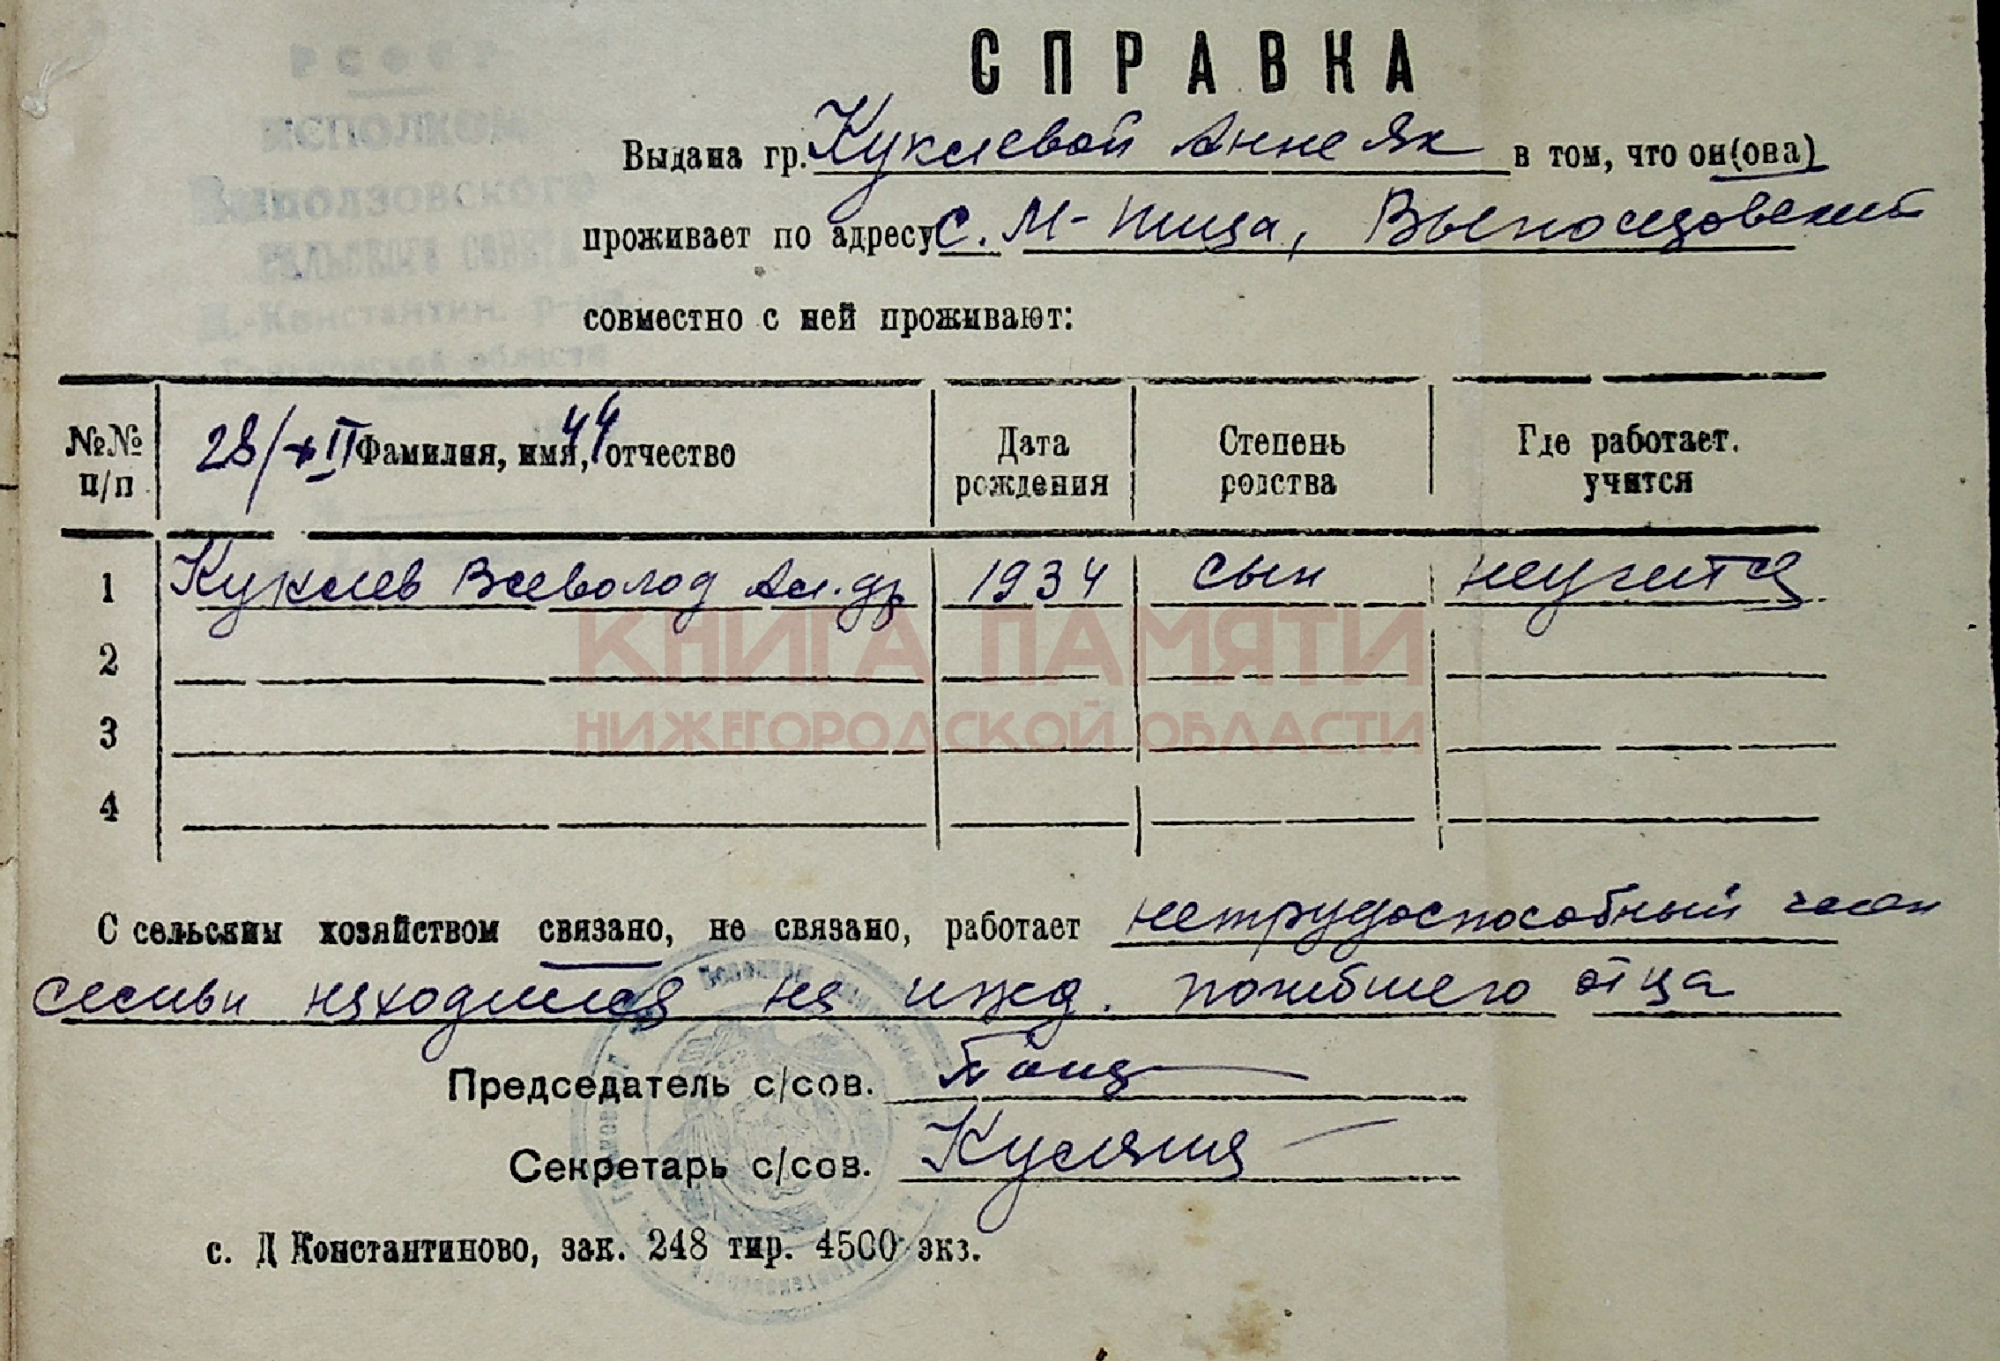 РСФСР
ИСПОЛКОМ
Выползовского
СЕЛЬСКОГО СОВЕТА
Д.-Константин. р-на
Горьковской области
СПРАВКА
Выдана гр. Куклевой Анне Як в том, что он(она)
проживает по адресу с. М-Пица, Выползовский
совместно с ней проживают:
№№ п/п Фамилия, имя, отчество Дата рождения Степень родства Где работает. учится
28/XII 44
1 Куклев Всеволод Ал.др 1934 сын неучится
2
3
4
С сельским хозяйством связано, не связано, работает нетрудоспособный член
семьи находился на ижд. погибшего отца
Председатель с/сов.
Секретарь с/сов.
с. Д Константиново, зак. 248 тир. 4500 экз.
КНИГА ПАМЯТИ
НИЖЕГОРОДСКОЙ ОБЛАСТИ